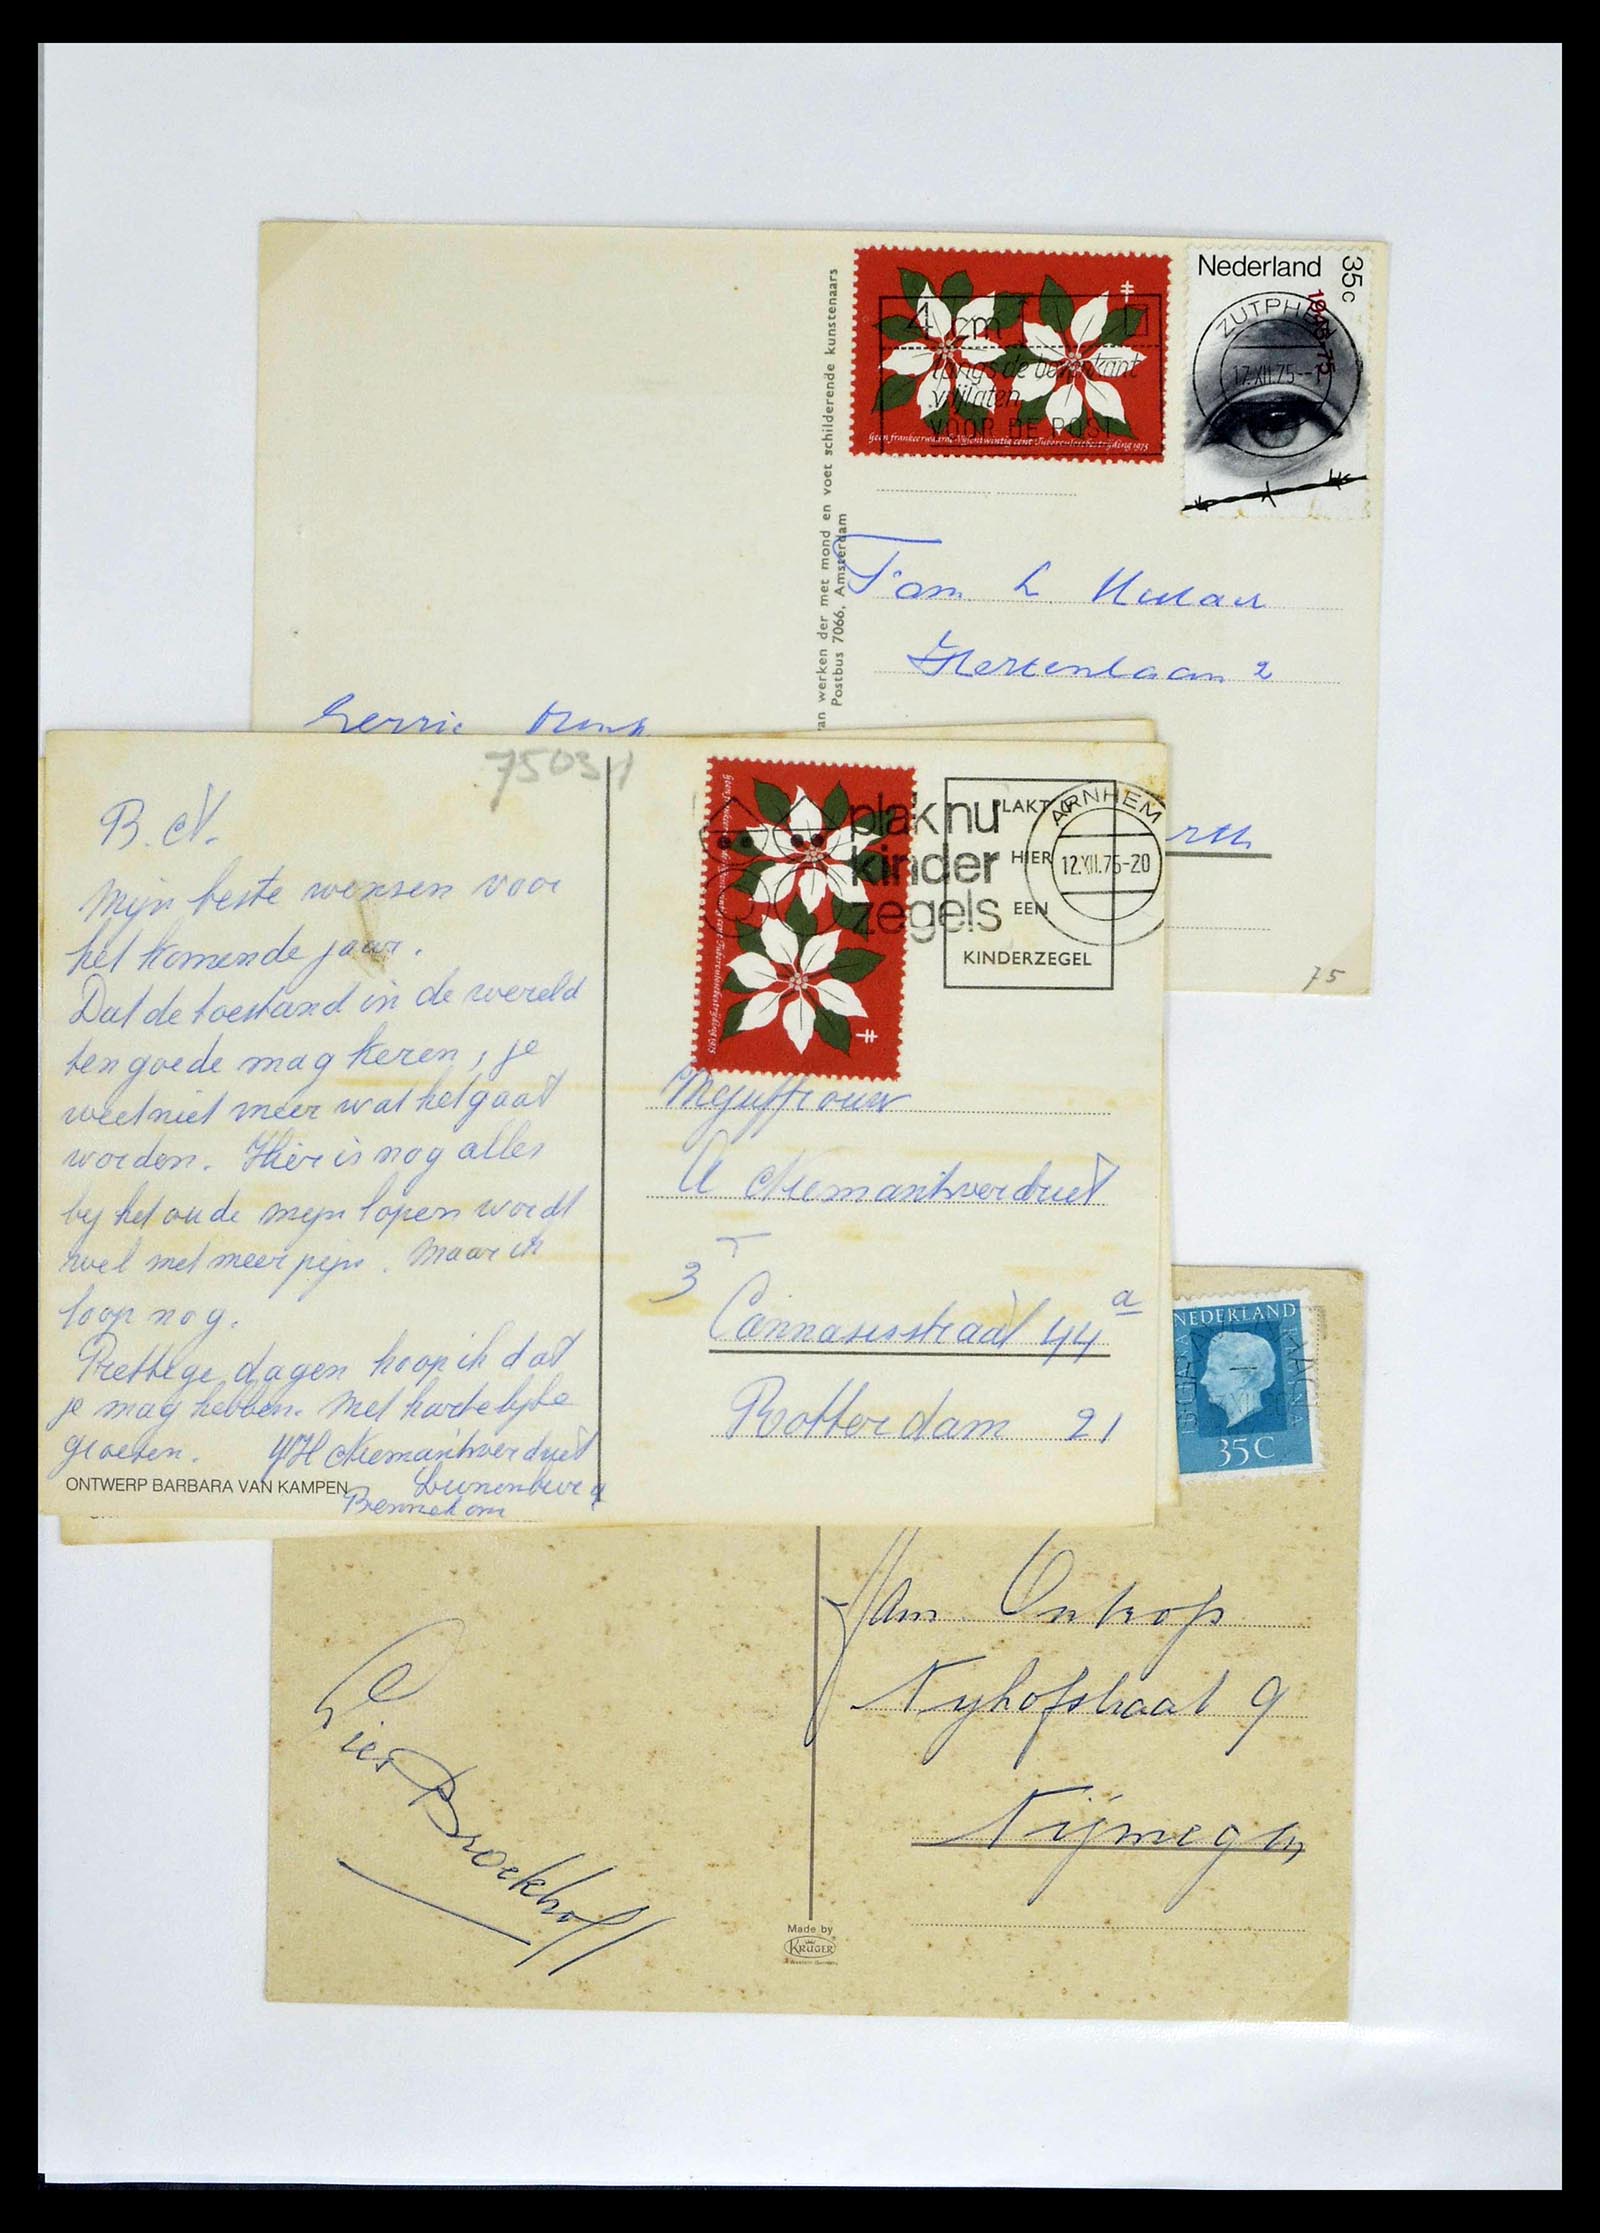 van werken der met mond en voet schilderende kunstenaars
Postbus 7066, Amsterdam
4 cm
langs de bovenkant
vrijlaten
VOOR DE POST
Geen frankeerwaarde Vijfentwintig cent Tuberculosebestrijding 1975
Nederland
35c
1945-75
ZUTPHEN
17.XII.75
Fam L.
Hertenlaan 2
Gerrie Henk
75
75031
B. N.
Mijn beste wensen voor
het komende jaar.
Dat de toestand in de wereld
ten goede mag keren, je
weet niet meer wat het gaat
worden. Hier is nog alles
bij het oude mijn lopen wordt
wel met meer pijn. Maar ik
loop nog.
Prettige dagen hoop ik dat
je mag hebben. Met hartelijke
groeten. Niemantsverdriet
Lunenburg
Bennekom
ONTWERP BARBARA VAN KAMPEN
plak nu
kinder
zegels
PLAKT U
HIER
EEN
KINDERZEGEL
ARNHEM
12.XII.75-20
Mejuffrouw
A Niemantsverdriet
3
Carnassestraat 44 a
Rotterdam 21
NEDERLAND
JULIANA REGINA
35C
Fam. Ontrop
Nyhofstraat 9
Nijmegen
Cier Broekhoff
Made by
KRÜGER
Western Germany